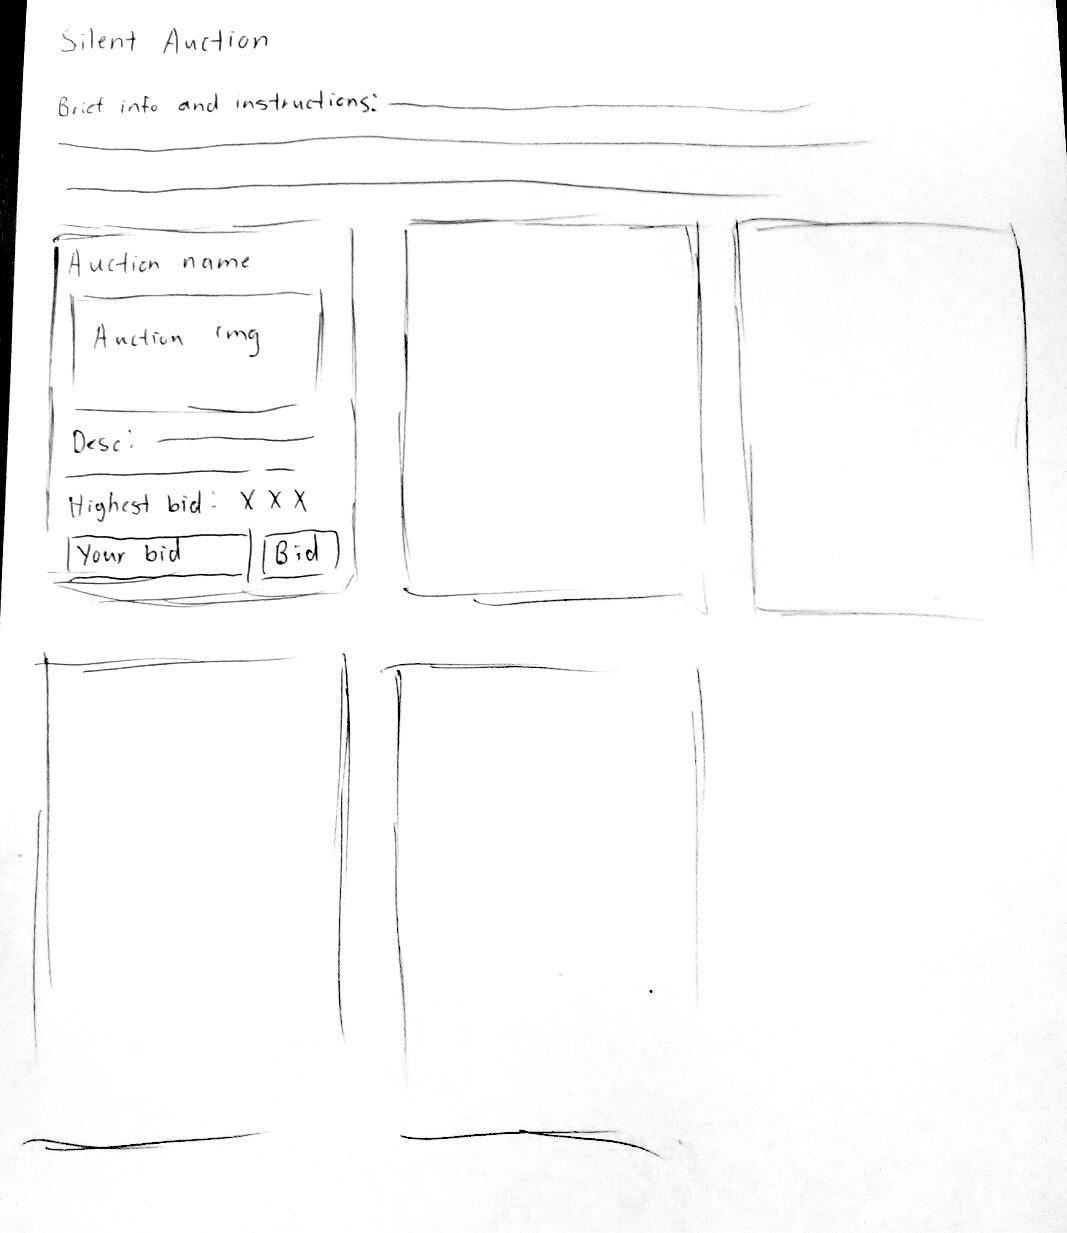 Silent Auction
Brief info and instructions:
Auction name
Auction img
Desc:
Highest bid: X X X
Your bid
Bid